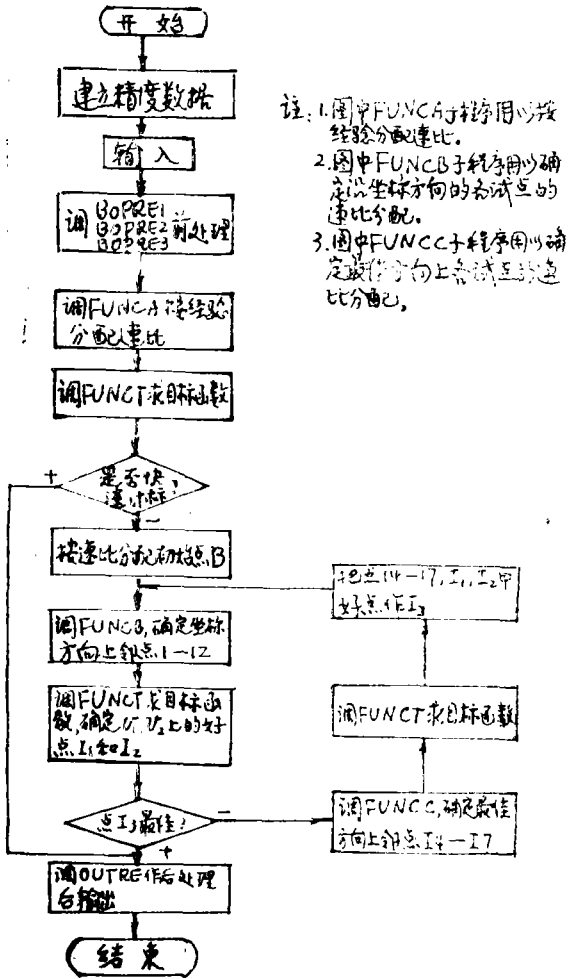 开始
建立精度数据
输入
调 BOPRE1
BOPRE2 前处理
BOPRE3
调FUNCA按经验
分配速比
调FUNCT求目标函数
+
是否快
速计标?
−
按速比分配初始点B
调FUNCB,确定坐标
方向上邻点1—12
调FUNCT求目标函
数,确定V₁V₂上的好
点I₁和I₂
点I₃最佳?
−
+
调OUTRE作后处理
后输出
结束
把点14—17,I₁,I₂中
好点作I₃
调FUNCT求目标函数
调FUNCC,确定最佳
方向上邻点14—17
注:1.图中FUNCA子程序用以按
经验分配速比。
2.图中FUNCB子程序用以确
定沿坐标方向的各试点的
速比分配。
3.图中FUNCC子程序用以确
定最佳方向上各试点的速
比分配。